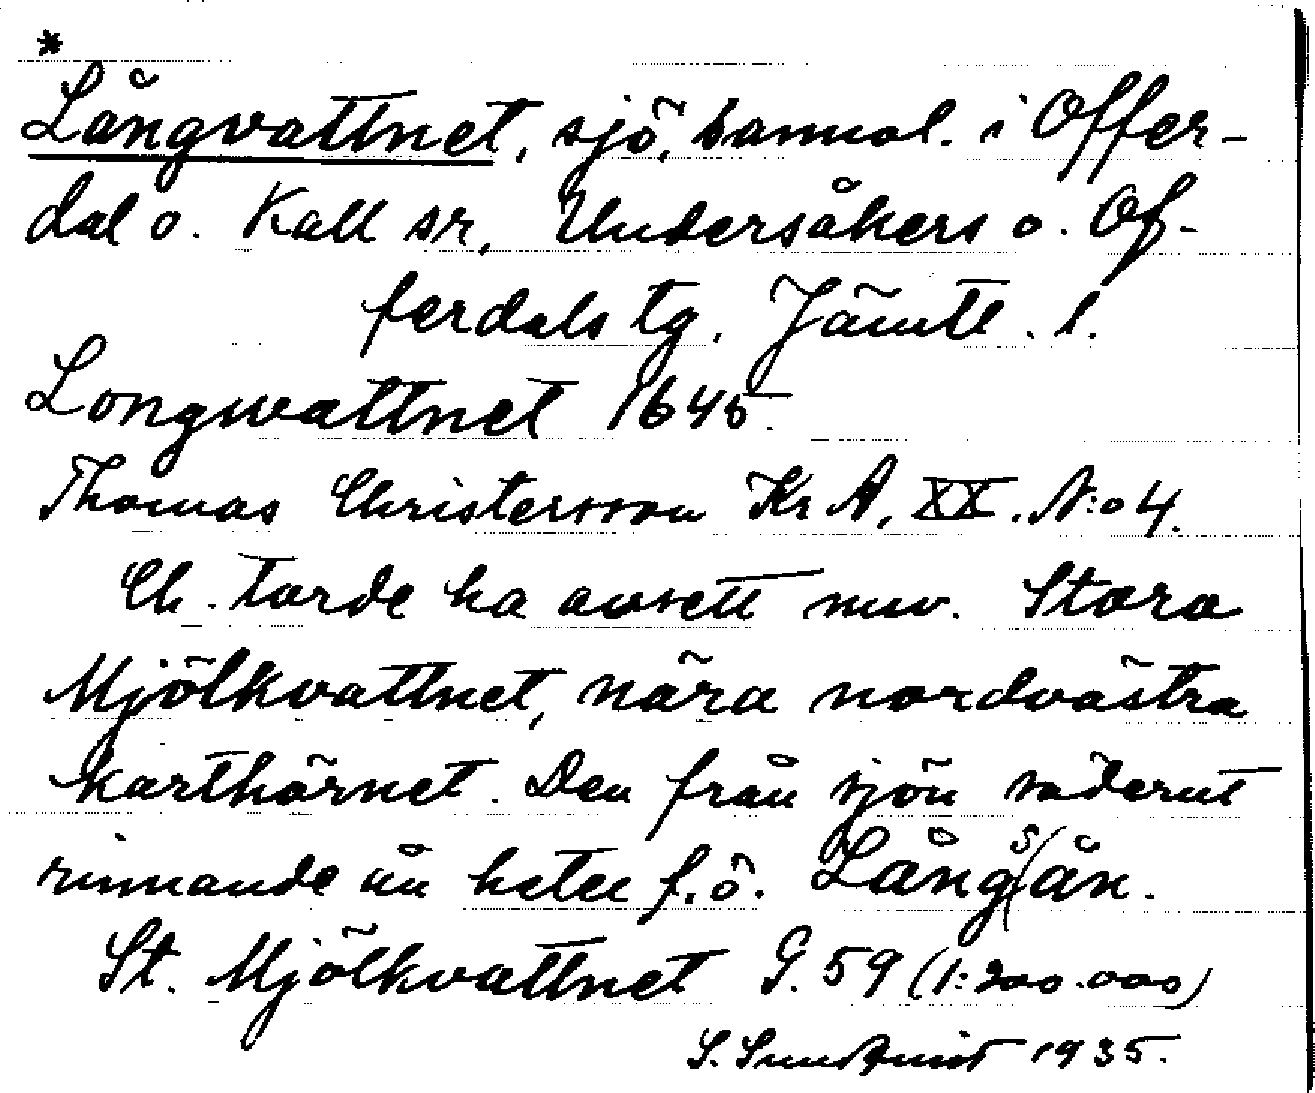 *
Långvattnet, sjö, samnal. i Offer-
dal o. Kall sr, Undersåkers o. Of-
ferdals tg. Jämtl. l.
Longwattnet 1645.
Thomas Christersson Kr A, XX. N:o 4.
Ch. torde ha avsett nuv. Stora
Mjölkvattnet, nära nordvästra
karthörnet. Den från sjön söderut
rinnande ån heter f.ö. Långsån.
St. Mjölkvattnet G. 59 (1:200.000)
S. Sundqvist 1935.